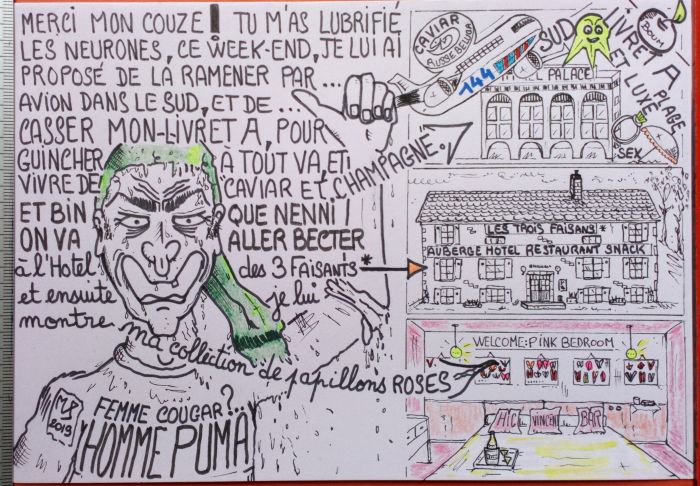 MERCI MON COUZE! TU M'AS LUBRIFIÉ
LES NEURONES, CE WEEK-END, JE LUI AI
PROPOSÉ DE LA RAMENER PAR...
AVION DANS LE SUD, ET DE...
CASSER MON LIVRET A, POUR
GUINCHER À TOUT VA, ET
VIVRE DE CAVIAR ET CHAMPAGNE.
ET BIN QUE NENNI!
ON VA ALLER BECTER
à l'Hotel des 3 FAISANTS*
et ensuite je lui
montre ma collection de papillons ROSES
FEMME COUGAR?..
HOMME PUMA
2019
CAVIAR
RUSSE BELUGA
144
SUD
LIVRET A
ET LUXE
PLAGE
SEX
BOUM
PALACE
LES TROIS FAISANS*
AUBERGE HOTEL RESTAURANT SNACK
WELCOME: PINK BEDROOM
HIC
VINCENT
BAR